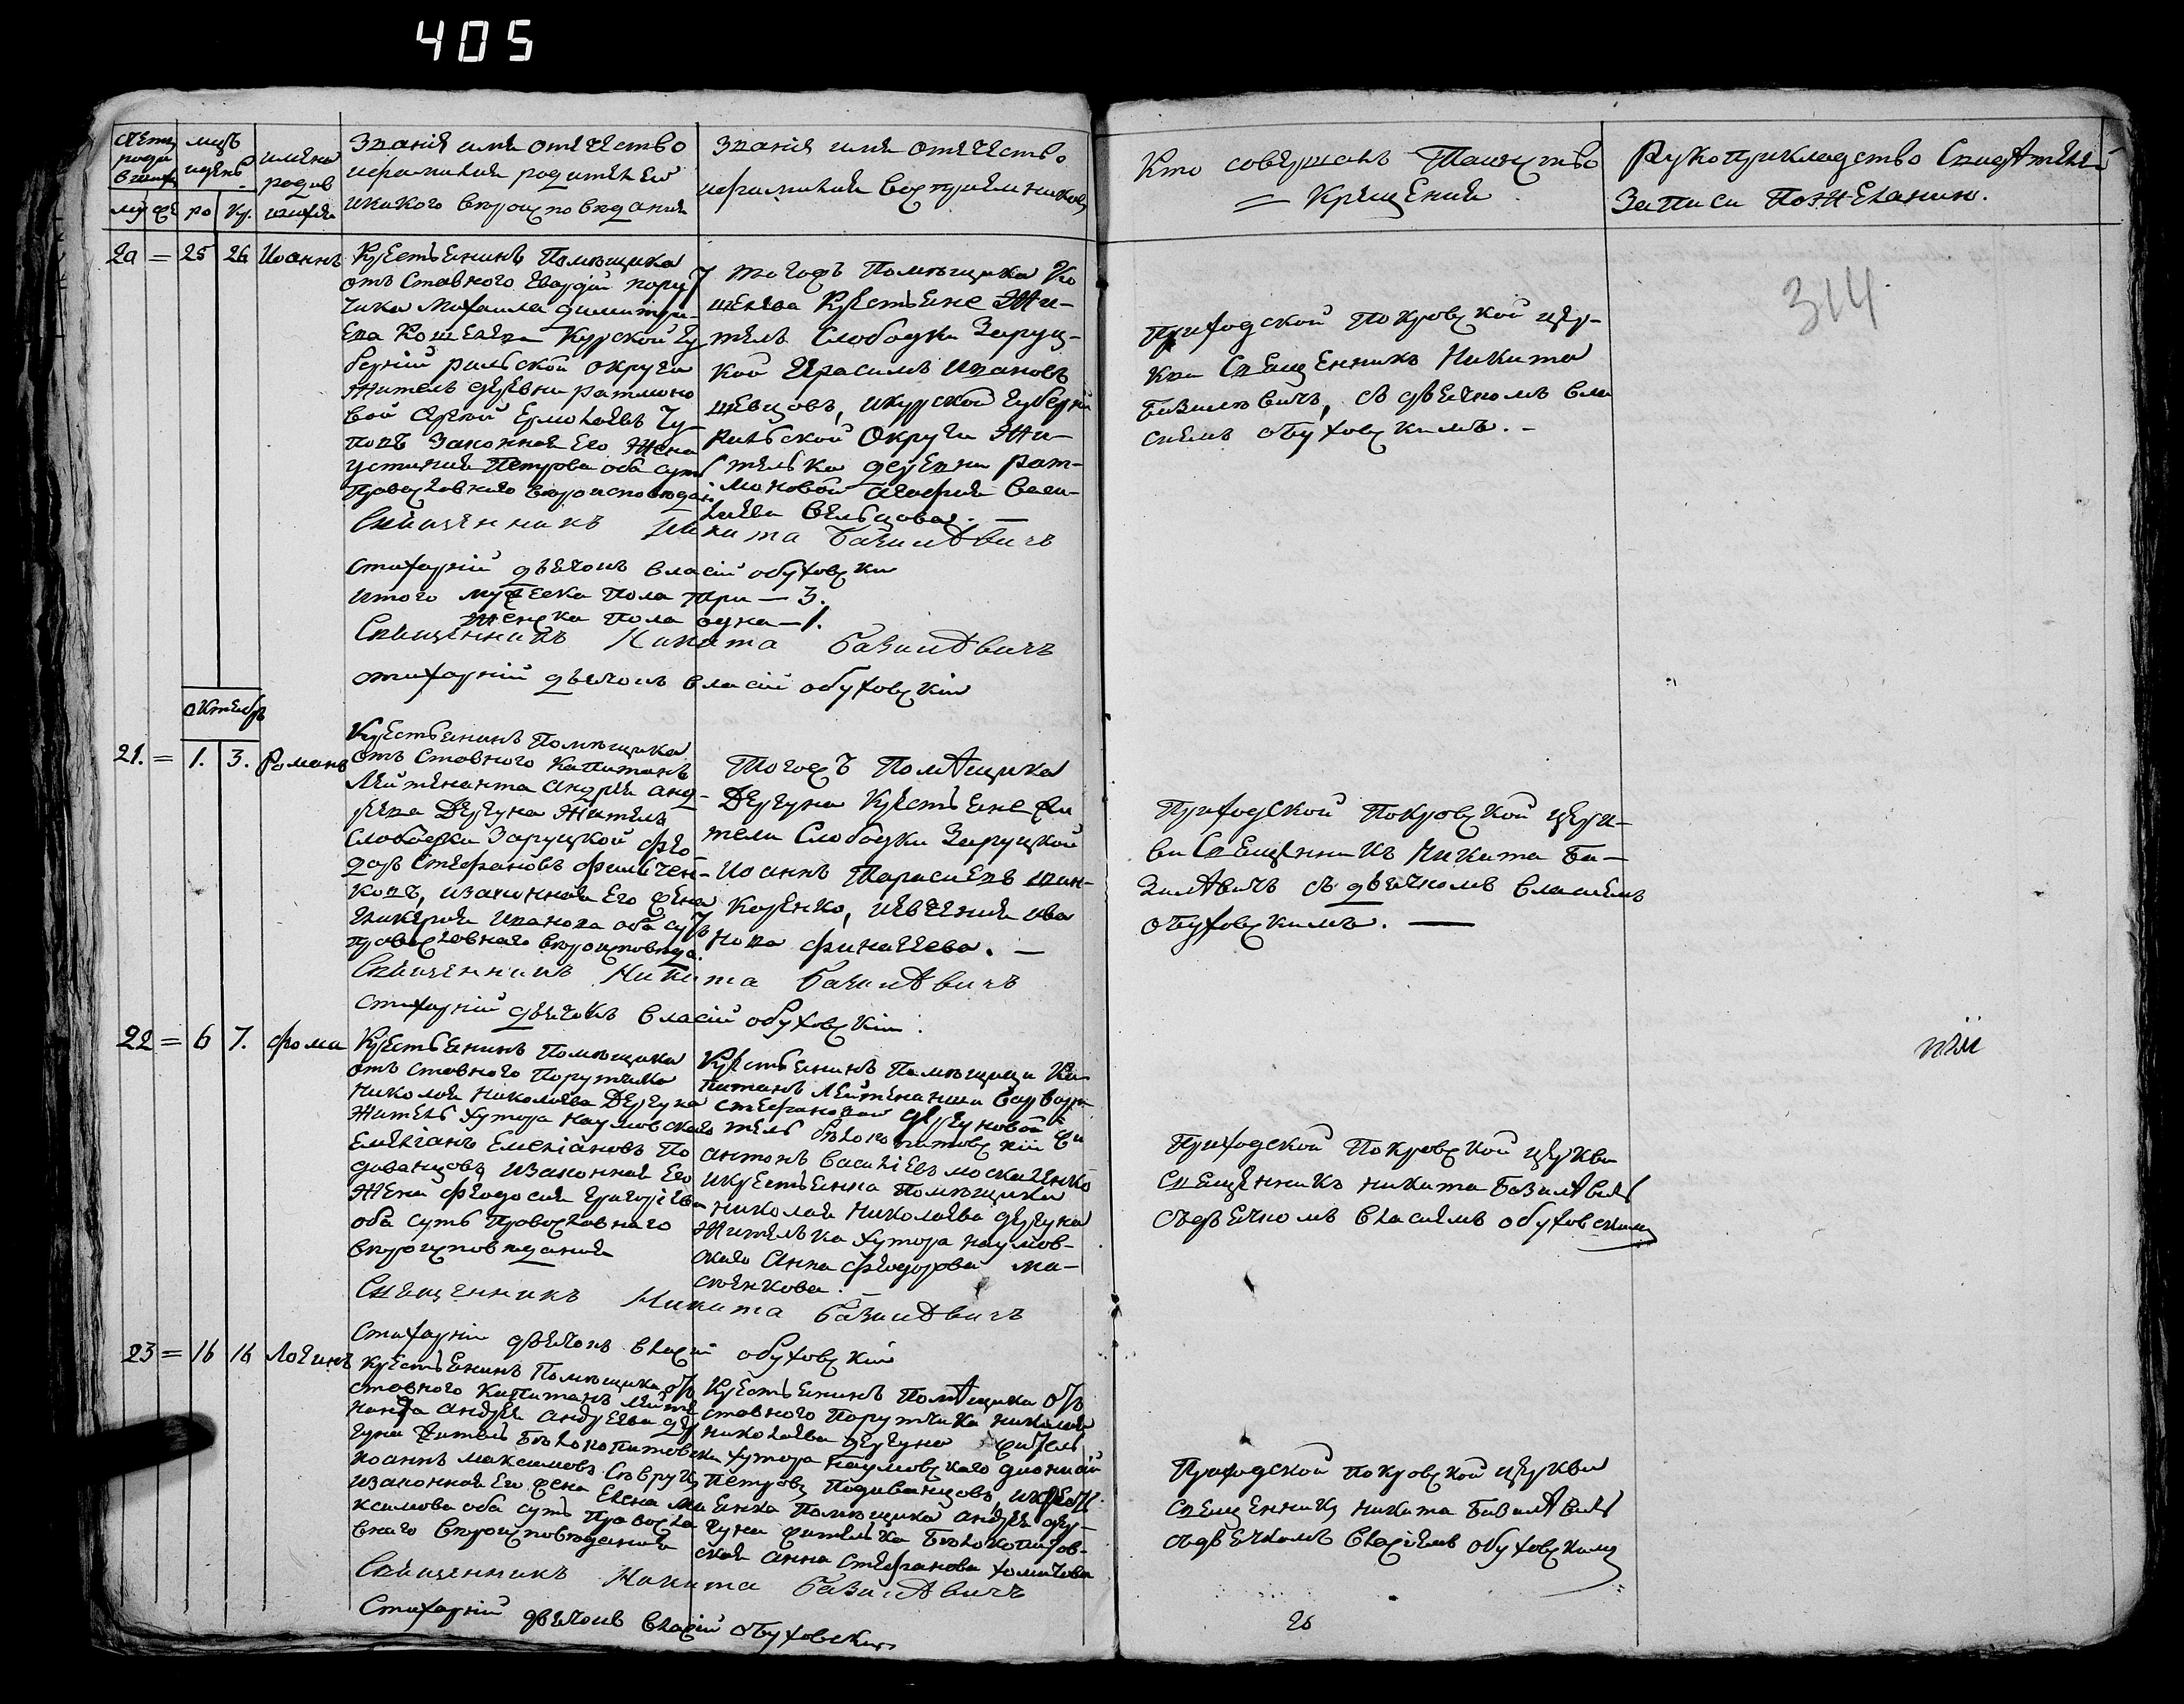 405
314
Счетъ родившихся
муж жен
мцъ и день
ро кр.
имена родившихся
Званія имя отечество
и фамилія родителей
и какого вероисповеданія
Званія имя отечество
и фамилія восприемниковъ
Кто совершалъ Таинство
Крещенія
Рукоприкладство Свидѣтелей
Записи По желанию.
20 = 25 26 Иоаннъ
Крестьянинъ Помѣщика
отъ ставного Гвардій пору
чика Михаила Димитри-
Курской Гу
берній рильской округи
житель деревни ратмано
вой
законная его жена
Петрова оба суть
православнаго вероисповедан
тогожъ Помѣщика Ко
шелева Крестьяне Жи-
тель Слободки Заруц-
кой Герасимъ Ивановъ
Шевцовъ, и курской губерній
рильской Округи Жи-
телька деревни Рат-
мановой Агафия Васи-
лиева
Приходской Покровской цер-
кви Священникъ Никита
Базилевичъ, съ дьячкомъ Вла
сиемъ Обуховскимъ. -
Священникъ Никита Базилѣвичъ
стихарній дьячокъ Власій Обуховски
итого мужеска пола три — 3.
женска пола одна — 1.
Священникъ Никита Базилѣвичъ
стихарній дьячокъ Власій Обуховскій
октябрь
21. = 1. 3. Романъ
Крестьянинъ Помѣщика
отъ Ставного Капитанъ
Лейтенанта Андрея Анд-
реева Дергуна Житель
Слободки Заруцкой Фео
доръ Стефановъ Филипчен-
ковъ, и законная Его жена
Гликерия Иванова оба суть
православнаго вероисповеда.
Тогожъ Помѣщика
Дергуна Крестьяне жи
тели Слободки Заруцкой
Иоаннъ Тарасиевъ
Ива
нова
Приходской Покровской церк-
ви Священникъ Никита Ба-
зилѣвичъ съ дьячкомъ Власиемъ
Обуховскимъ. —
Священникъ Никита Базилѣвичъ
Стихарній дьячокъ Власій Обуховскій
22 = 6 7. Фома
Крестьянинъ Помѣщика
отъ ставного Поручика
Николая Николаева Дергуна
Житель хутора Наумовскаго
Емелианъ Емелиановъ По
дованцовъ и законная Его
Жена Феодосия Григориева
оба суть Православнаго
вероисповеданія
Крестьянинъ Помѣщици Ка
питанъ Лейтенанши Варвари
Стефановой Дергуновой жи
тель Бѣлокопитовскій
Антонъ Василіевъ Москаленко
и крестьянка Помѣщика
Николая Николаева Дергуна
Жителька хутора Наумов-
скаго Анна Феодорова
Приходской Покровской церкви
Священникъ Никита Базилѣвичъ
съ дьячкомъ Власиемъ Обуховскимъ
Священникъ Никита Базилѣвичъ
Стихарній дьячокъ Власій Обуховскій
23 = 16 16 Логинъ
Крестьянинъ Помѣщика от
ставного Капитанъ Лейте
нанта Андрея Андреева Дер
гуна житель Бѣлокопитовски
Иоаннъ Максимовъ
и законная Его жена Елена Ма
ксимова оба суть Правосла
внаго вероисповеданія
Крестьянинъ Помѣщика от
ставного Поручика Николая
Николаева Дергуна житель
хутора Наумовскаго Дионисій
Петровъ Подованцовъ, и крест
янка Помѣщика Андрея Дер-
гуна жителька Бѣлокопитов-
ская Анна Стефанова
Приходской Покровской церкви
Священникъ Никита Базилѣвичъ
съ дьячкомъ Власиемъ Обуховскимъ
Священникъ Никита Базилѣвичъ
Стихарній дьячокъ Власій Обуховскій
26